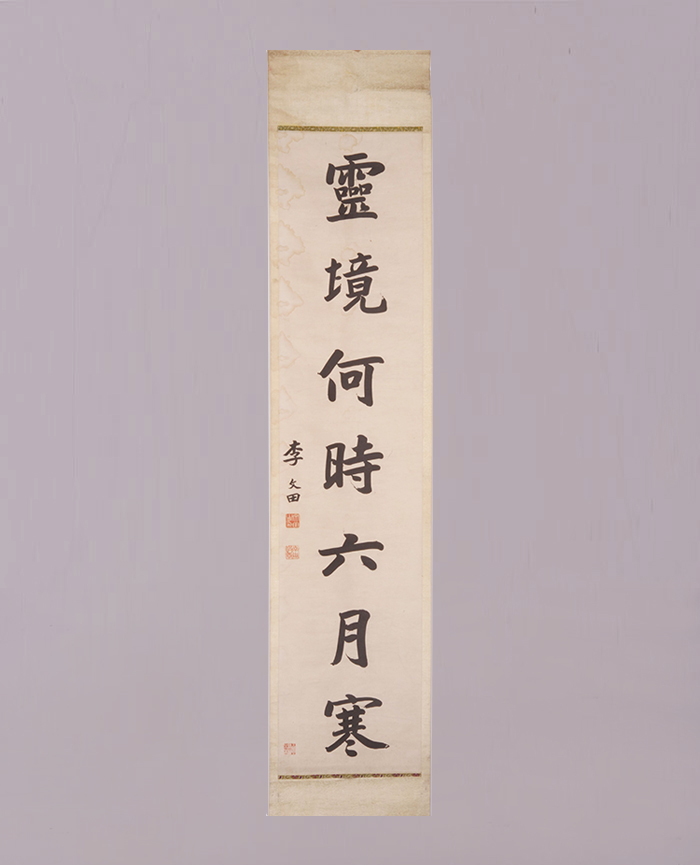 靈境何時六月寒
李文田